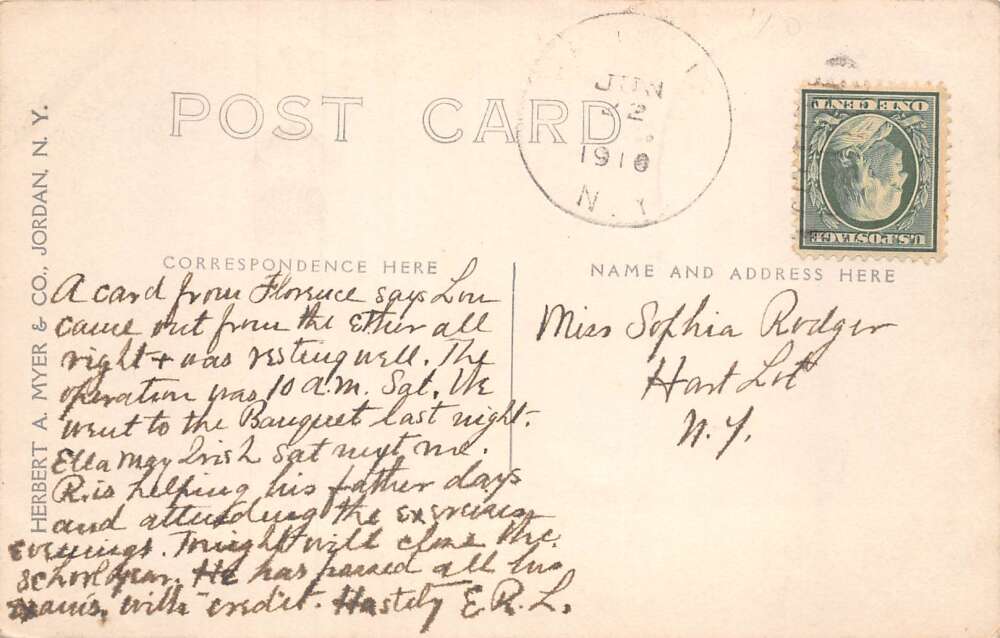 POST CARD
JUN
1910
N.Y.
ONE CENT
U.S. POSTAGE
HERBERT A. MYER & CO., JORDAN, N. Y.
CORRESPONDENCE HERE
A card from Florence says Lou
came out from the Ether all
right + was resting well. The
operation was 10 a.m. Sat. We
went to the Banquet last night.
Ella May Irish sat next me.
R. is helping his father days
and attending the exercises
evenings. Tonight will close the
school year. He has passed all his
exams. with credit. Hastily E. R. L.
NAME AND ADDRESS HERE
Miss Sophia Rodger
Hart Lot
N. Y.